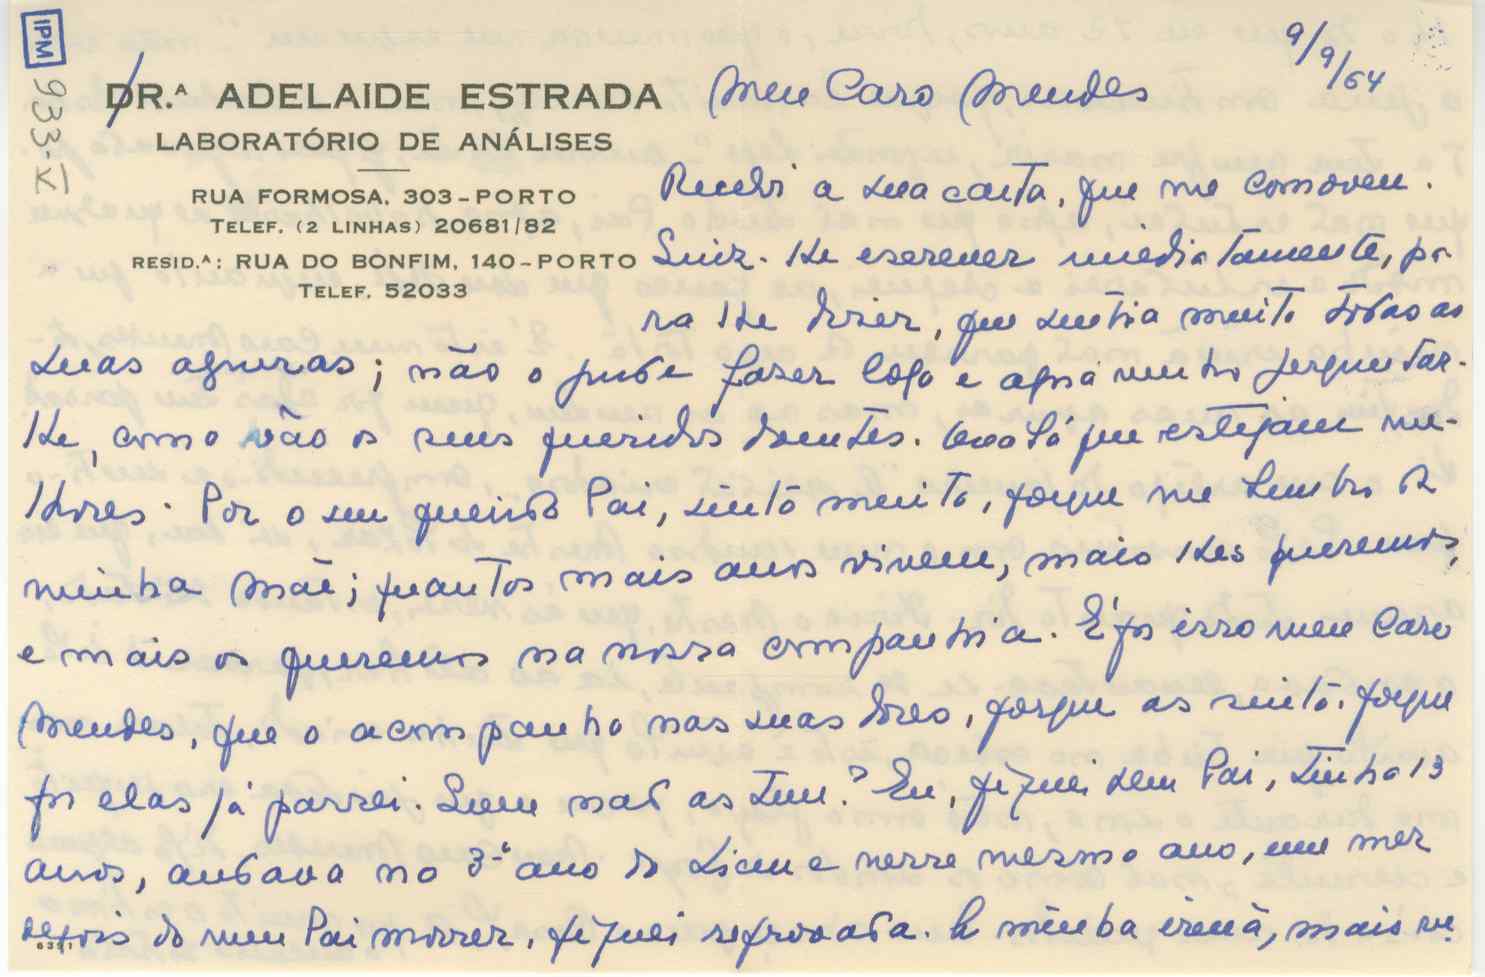 IPM
933-XI
9/9/64
DR.ª ADELAIDE ESTRADA
LABORATÓRIO DE ANÁLISES
RUA FORMOSA, 303-PORTO
TELEF. (2 LINHAS) 20681/82
RESID.ª: RUA DO BONFIM, 140-PORTO
TELEF. 52033
Meu Caro Mendes
Recebi a sua carta, que me comoveu.
Quiz-lhe escrever imediatamente, pa-
ra lhe dizer, que sentia muito todas as
suas agruras; não o pude fazer logo e agora venho perguntar-
lhe, como vão os seus queridos doentes. Oxalá que estejam me-
lhores. Por o seu querido Pai, sinto muito, porque me lembro da
minha Mãe; quantos mais anos vivem, mais lhes queremos,
e mais os queremos na nossa companhia. É por isso meu Caro
Mendes, que o acompanho nas suas dores, porque as sinto, porque
por elas já passei. Quem não as tem? Eu, fiquei sem Pai, tinha 13
anos, andava no 3.º ano do Liceu e nesse mesmo ano, um mez
depois do meu Pai morrer, fiquei reprovada. A minha irmã, mais ve.
6351